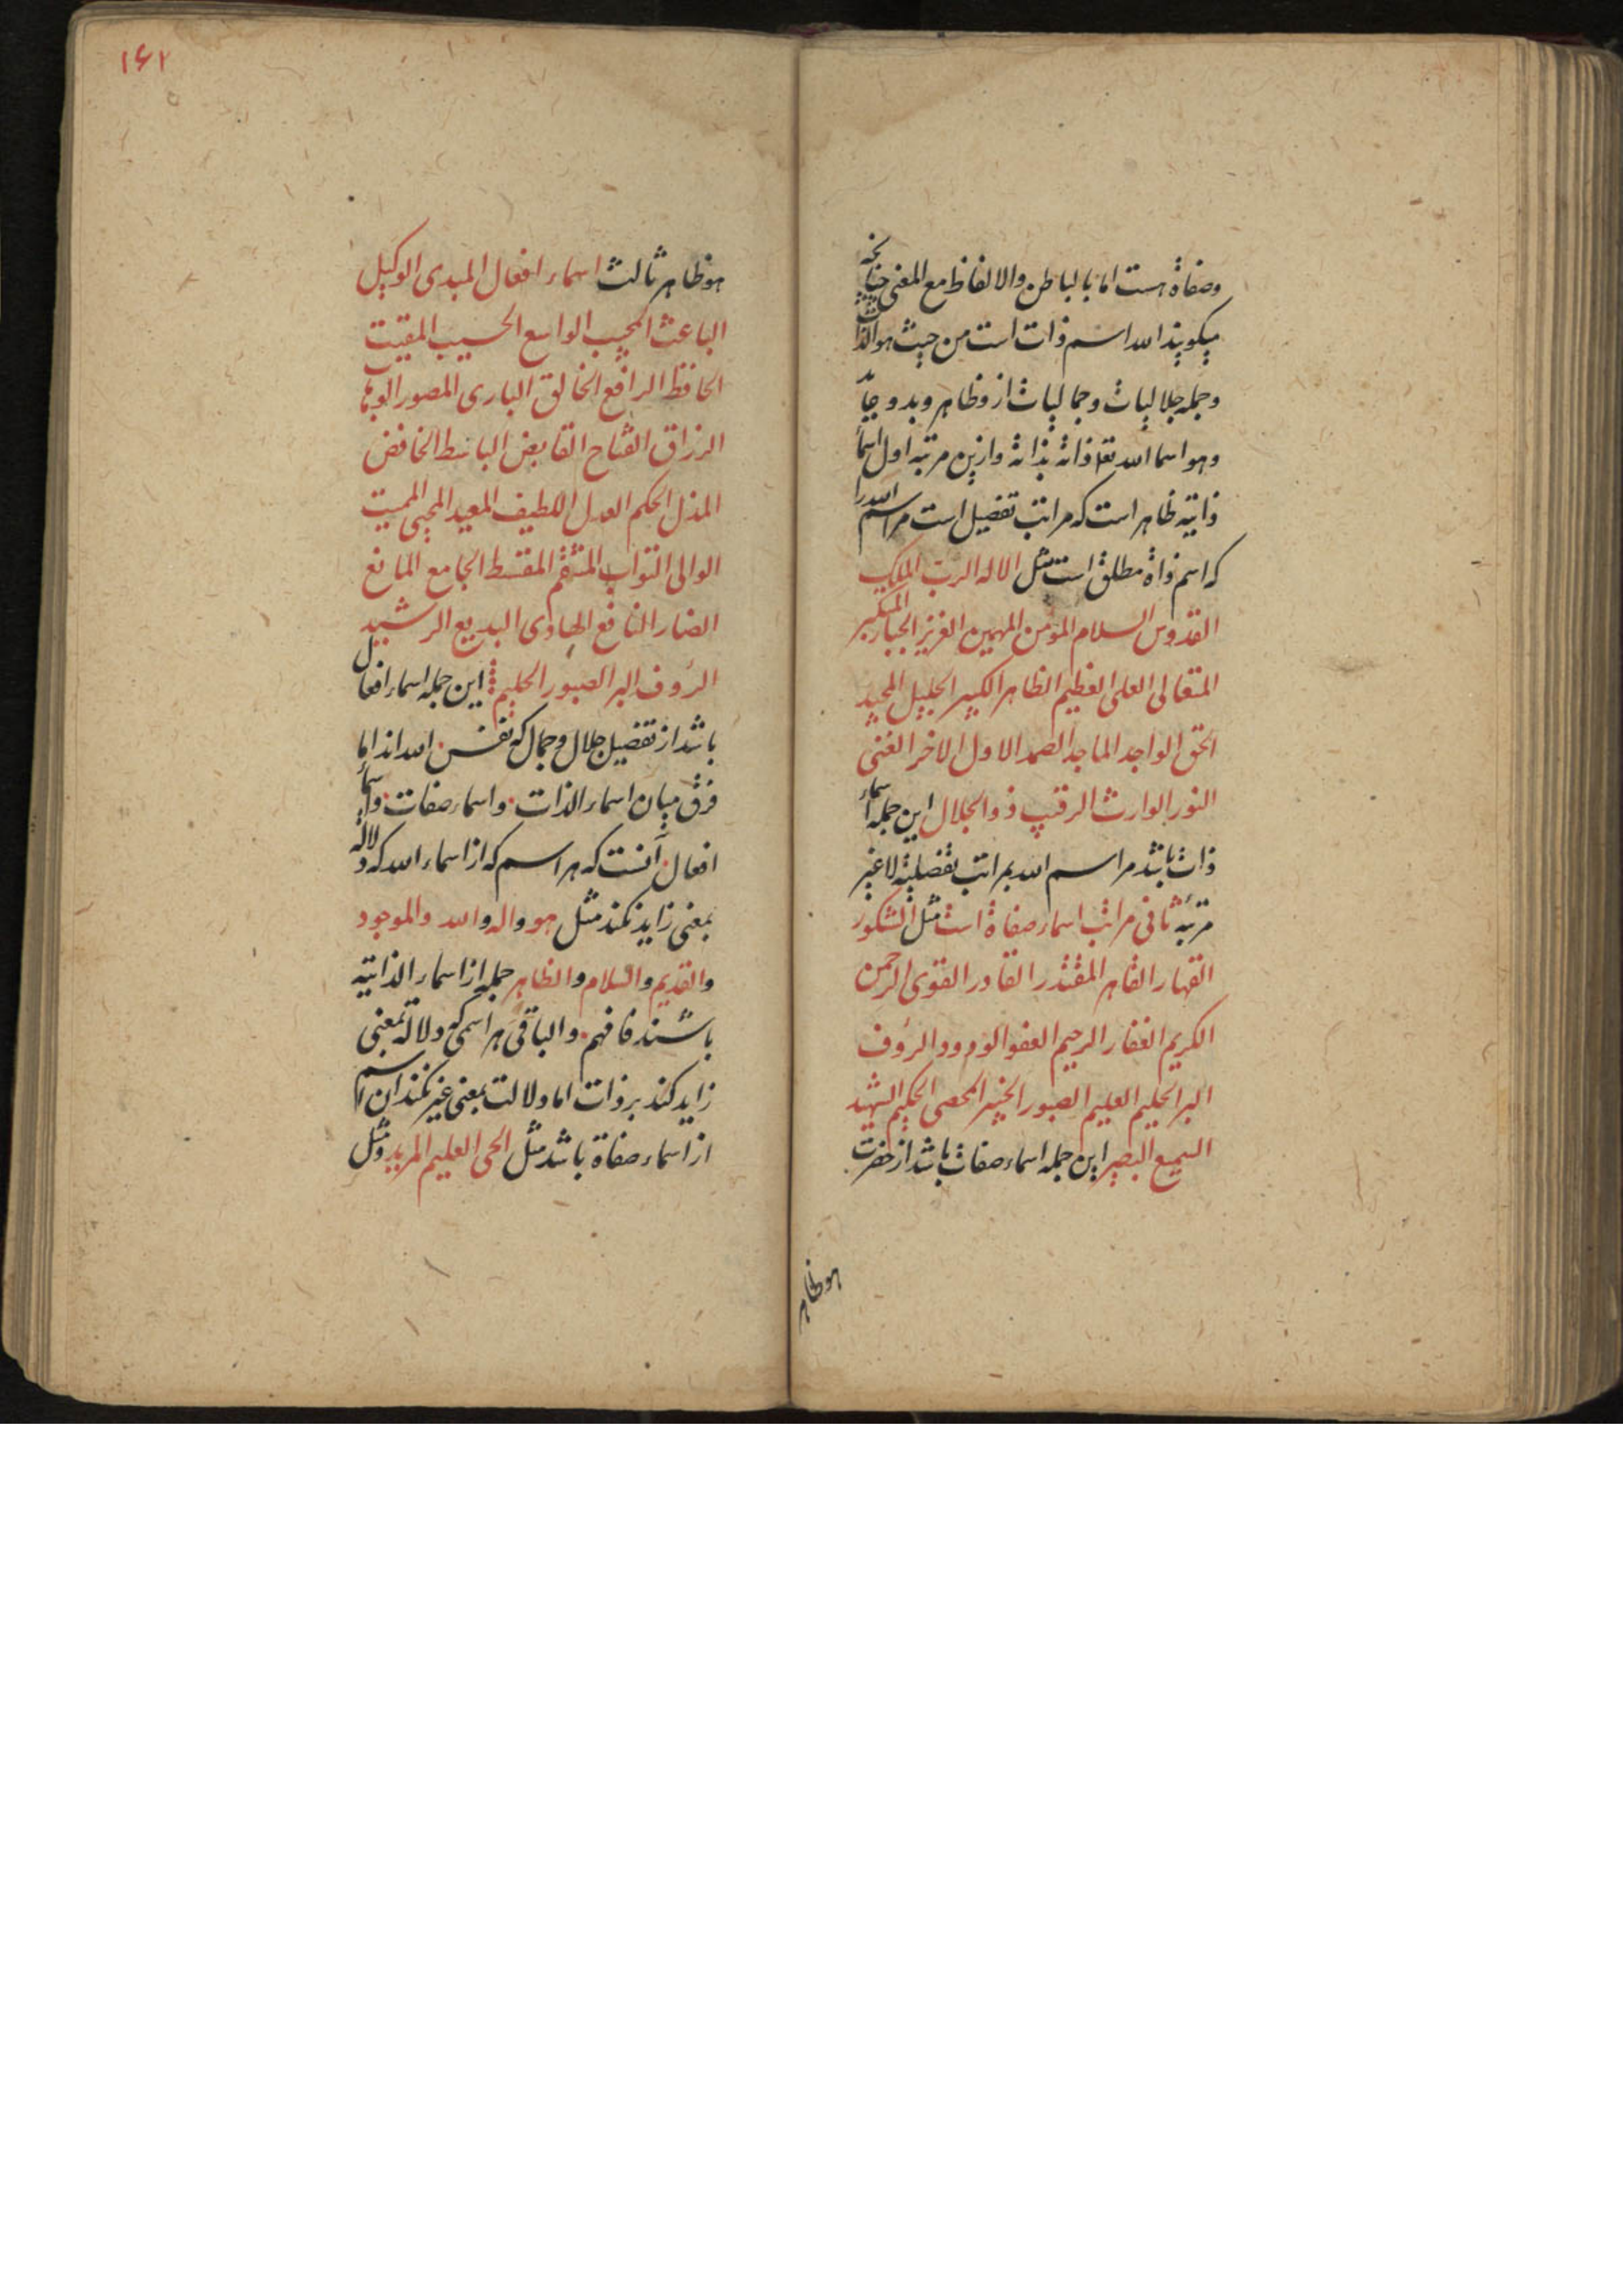 وصفاة هست اما بالباطن والالفاظ مع المعنى چنانچه
میکویند الله اسم ذات است من حیث هو الذات
وجمله جلالیات وجمالیات ازو ظاهر وبدو
وهو اسما الله تعا ذاته بذاته وازین مرتبه اول اسما
ذاتیه ظاهر است که مراتب تفصیل است مر اسم الله را
که اسم ذاة مطلق است مثل الاله الرب الملک
القدوس السلام المومن المهیمن العزیز الجبار المتکبر
المتعالی العلی العظیم الظاهر الکبیر الجلیل المجید
الحق الواجد الماجد الصمد الاول الاخر الغنی
النور الوارث الرقیب ذو الجلال این جمله اسماء
ذات باشد مر اسم الله بمراتب تفصلیة لا غیر
مرتبه ثانی مراتب اسماء صفاة است مثل الشکور
القهار القاهر المقتدر القادر القوی الرحمن
الکریم الغفار الرحیم العفو الودود الرؤف
البر الحلیم العلیم الصبور الخبیر المحصی الحکیم الشهید
السمیع البصیر این جمله اسماء صفات باشد از حضرت
هو ظاهر
۱۶۲
هو ظاهر ثالث اسماء افعال المبدی الوکیل
الباعث المجیب الواسع الحسیب المقیت
الحافظ الرافع الخالق الباری المصور الوهاب
الرزاق الفتاح القابض الباسط الخافض
المذل الحکم العدل اللطیف المعید المحیی الممیت
الوالی التواب المنتقم المقسط الجامع المانع
الضار النافع الهادی البدیع الرشید
الرؤف البر الصبور الحلیم این جمله اسماء افعال
باشد از تفصیل جلال وجمال که نفس الله اند اما
فرق میان اسماء الذات واسماء صفات واسماء
افعال آنست که هر اسم که از اسماء الله که دلاله
بمعنی زاید نکند مثل هو واله والله والموجود
والقدیم والسلام والظاهر جمله از اسماء الذاتیه
باشند فافهم والباقی هر اسمی که دلاله بمعنی
زاید کند بر ذات اما دلالت بمعنی غیر نکند ان اسم
از اسماء صفاة باشد مثل الحی العلیم المرید ومثل